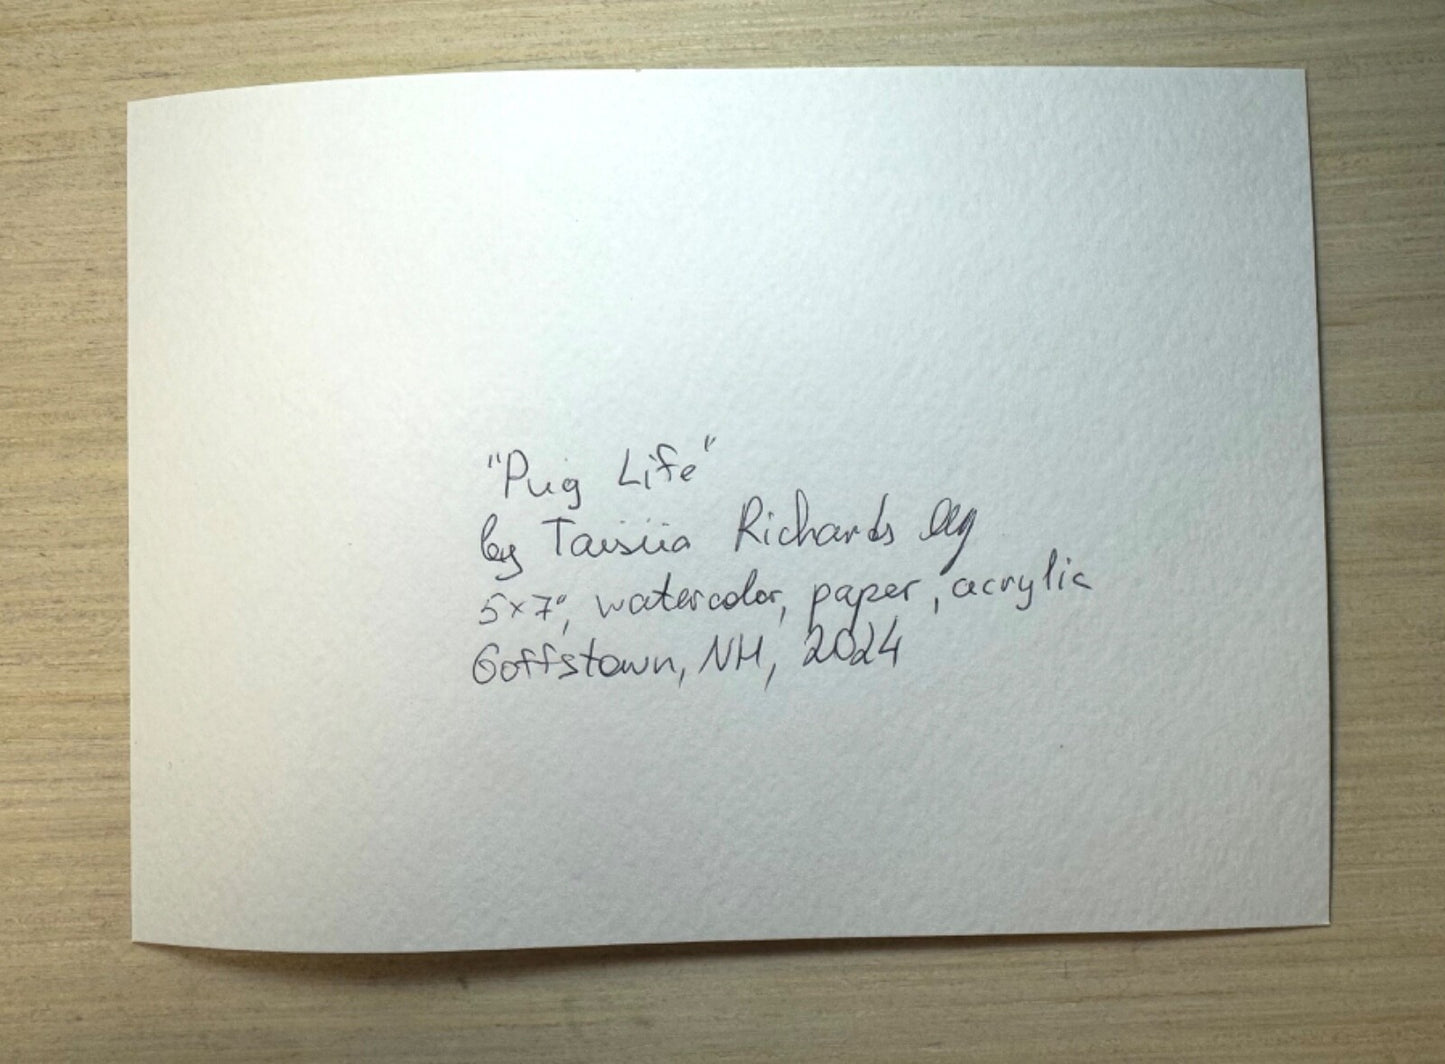 "Pug Life"
by Taisiia Richards
5×7", watercolor, paper, acrylic
Goffstown, NH, 2024